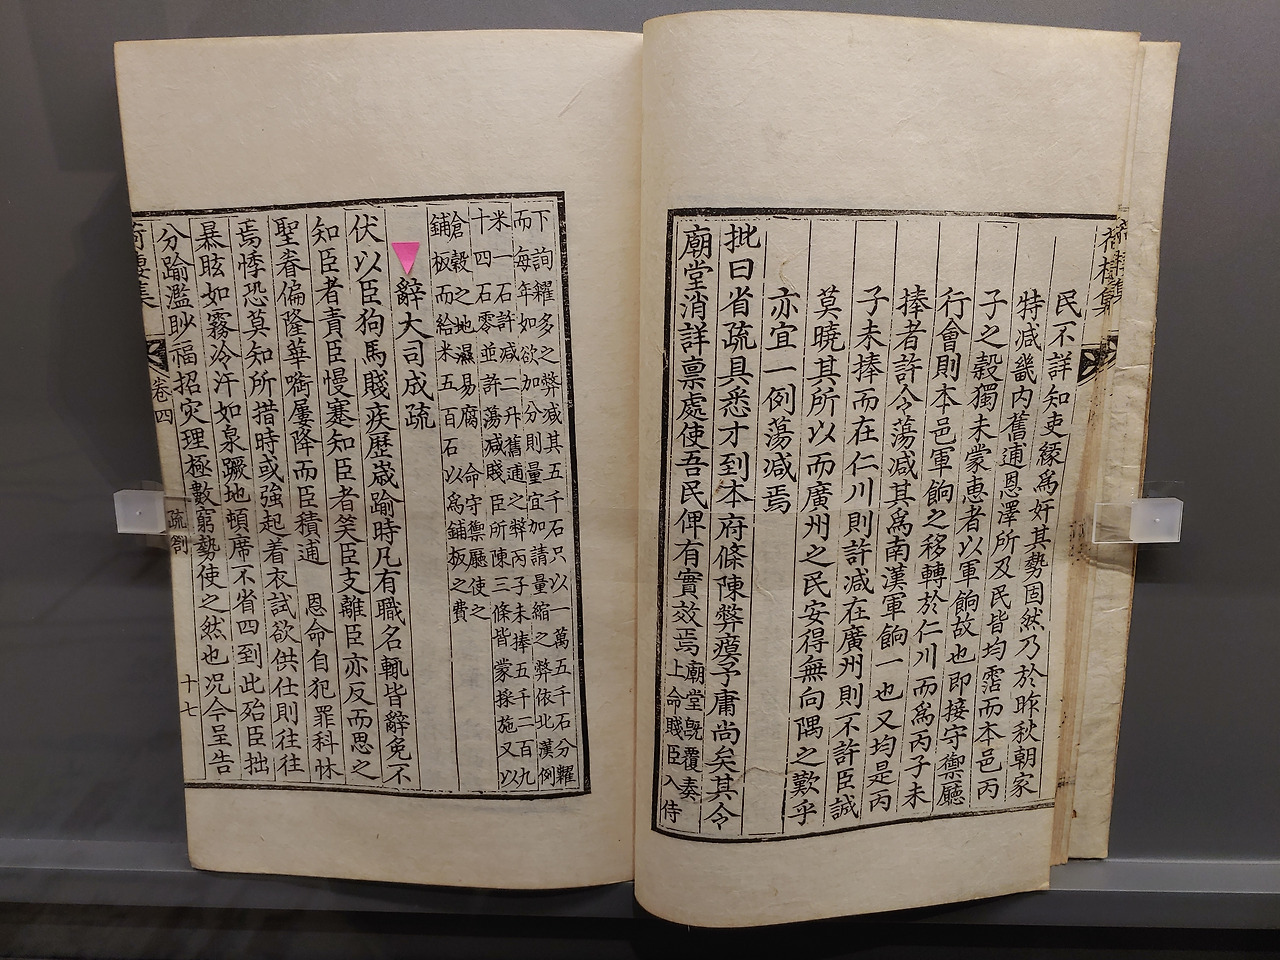 荷棲集
民不詳知吏緣爲奸其勢固然乃於昨秋朝家
特减畿內舊逋恩澤所及民皆均霑而本邑丙
子之糓獨未蒙惠者以軍餉故也即接守禦廳
行會則本邑軍餉之移轉於仁川而爲丙子未
捧者許令蕩减其爲南漢軍餉一也又均是丙
子未捧而在仁川則許减在廣州則不許臣誠
莫曉其所以而廣州之民安得無向隅之歎乎
亦宜一例蕩减焉
批曰省疏具悉才到本府條陳弊瘼予庸尚矣其令
廟堂消詳禀處使吾民俾有實效焉廟堂旣覆奏
上命賤臣入侍
下詢糴多之弊减其五千石只以一萬五千石分糶
而每年如欲加分則量宜加請量縮之弊依北漢例
米一石許减二升舊逋之弊丙子未捧五千二百九
十四石零並許蕩减賤臣所陳三條皆蒙採施又以
倉穀之地濕易腐 命守禦廳使之
鋪板而給米五百石以爲鋪板之費
辭大司成疏
伏以臣狗馬賤疾歷歲踰時凡有職名輒皆辭免不
知臣者責臣慢蹇知臣者笑臣支離臣亦反而思之
聖眷偏隆華啣屢降而臣積逋 恩命自犯罪科怵
焉悸恐莫知所措時或強起着衣試欲供仕則往往
暴眩如霧冷汗如泉蹶地頓席不省四到此殆臣拙
分踰濫眇福招灾理極數窮勢使之然也况今呈告
荷棲集 卷四 疏劄 十七